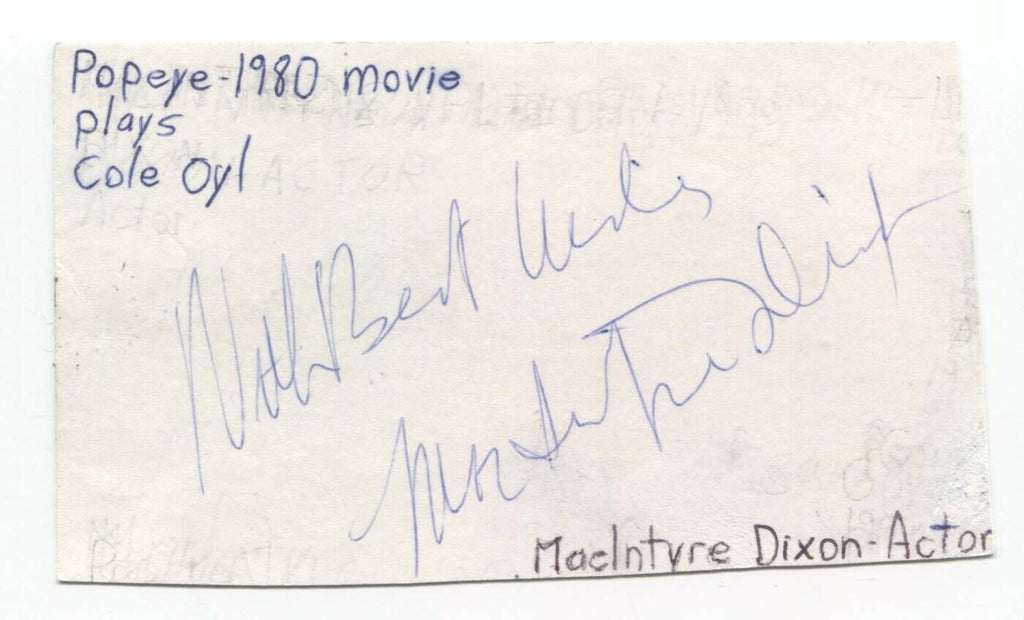 Popeye-1980 movie
plays
Cole Oyl
ACTOR
Actor
With Best Wishes
MacIntyre Dixon
MacIntyre Dixon-Actor